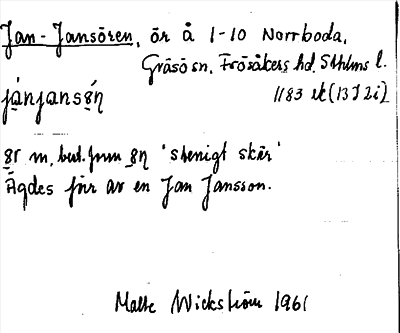 Jan-Jansören, ör å 1-10 Norrboda,
Gräsö sn, Frösåkers hd, Sthlms l.
jánjans8̀ŋ
1183 ek (13I 2i)
8r m, best. form 8ŋ 'stenigt skär'
Ägdes förr av en Jan Jansson.
Malte Wickström 1961